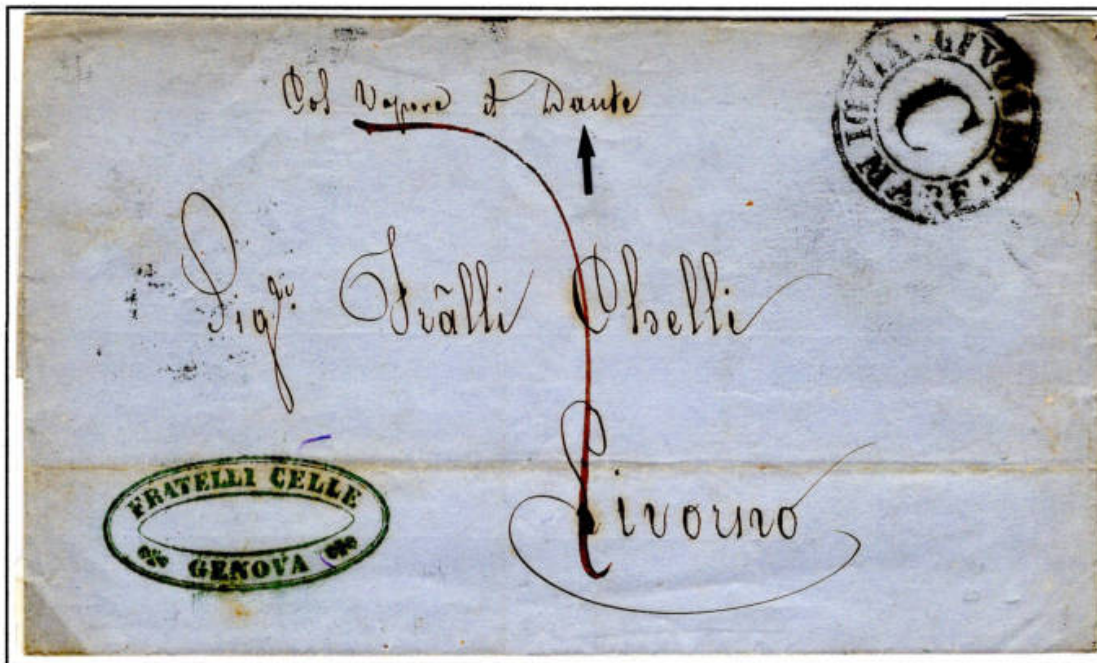 Col Vapore Il Dante
C
Sig.ri Frãlli Chelli
Livorno
FRATELLI CELLE
GENOVA